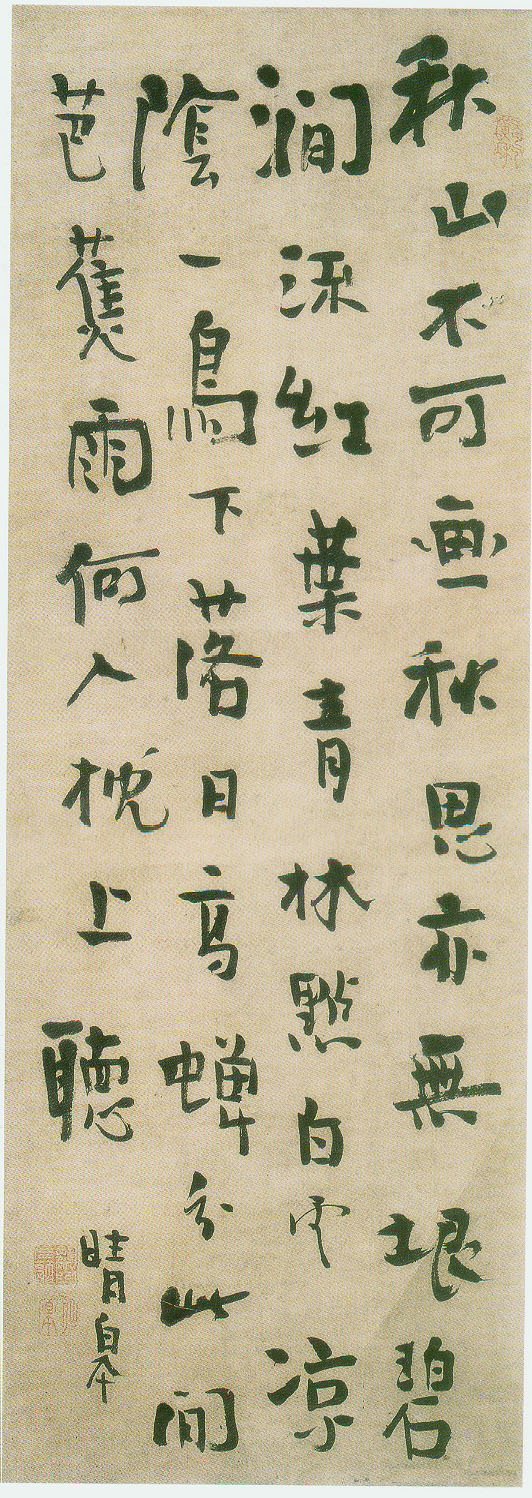 秋山不可画秋思亦無垠碧
澗流紅葉青林點白雲凉
陰一鳥下落日高蟬分此間
芭蕉雨何人枕上聽
晴皋